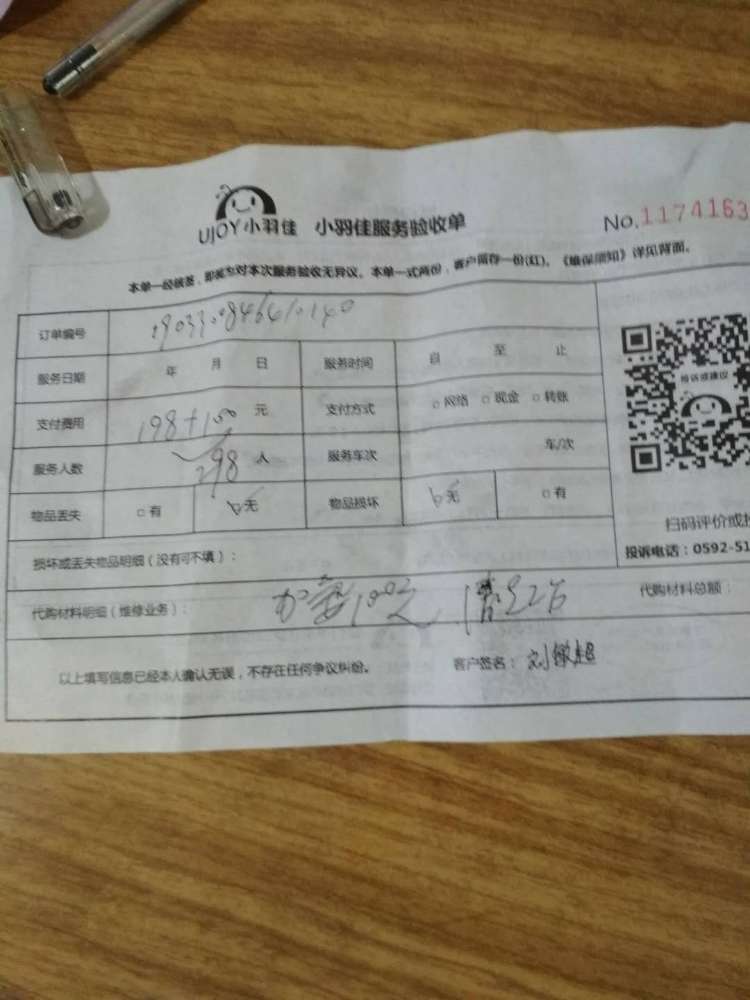 UJOY小羽佳 小羽佳服务验收单 No.1174163
本单一经签签，即视为对本次服务验收无异议。本单一式两份，客户留存一份(红)。《维保须知》详见背面。
订单编号
服务日期 年 月 日 服务时间 自 至 止
支付费用 198+100 元 支付方式 □网络 □现金 □转账
服务人数 298 人 服务车次 车/次
物品丢失 □有 □无 物品损坏 □无 □有
投诉或建议
扫码评价或
投诉电话：0592-51
损坏或丢失物品明细（没有可不填）：
代购材料明细（维修业务）： 加 100元 代购材料总额：
以上填写信息已经本人确认无误，不存在任何争议纠纷。 客户签名：刘